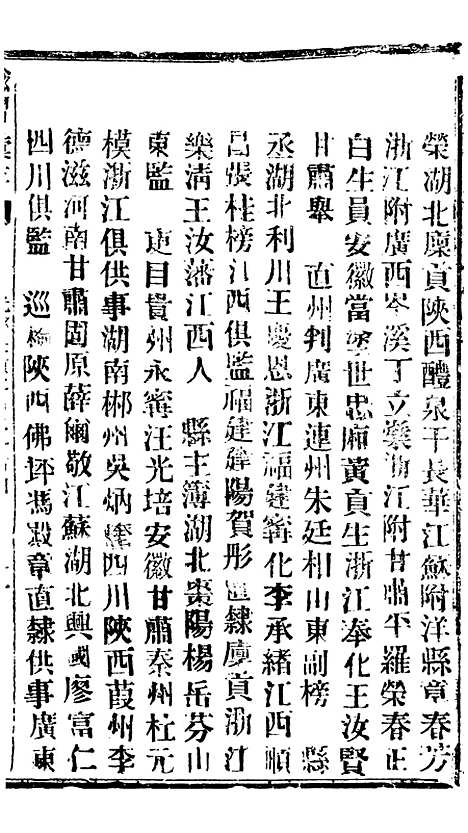 榮湖北廩貢陝西醴泉于長華江蘇附洋縣章春芳
浙江附廣西岑溪丁立業浙江附甘肅平羅榮春正
白生員安徽當塗世忠廂黃貢生浙江奉化王汝賢
甘肅舉　直州判廣東連州朱廷相山東副榜　縣
丞湖北利川王慶恩浙江福建寗化李承緒江西順
昌張桂榜江西俱監福建建陽賀彤直隸廩貢浙江
樂清王汝藩江西人　縣主簿湖北棗陽楊岳芬山
東監　吏目貴州永寗汪光培安徽甘肅秦州杜元
模浙江俱供事湖南郴州吳炳四川陝西葭州李
德滋河南甘肅固原薛爾敬江蘇湖北興國廖富仁
四川俱監　巡檢陝西佛坪馮毅章直隸供事廣東